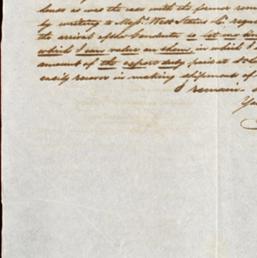 as was the case with the former
by writing to Messrs. West
the arrival of the Conducta to let me
which I can value on them, in which I
amount of the export duty, paid at
easily recover in making shipments of
I remain